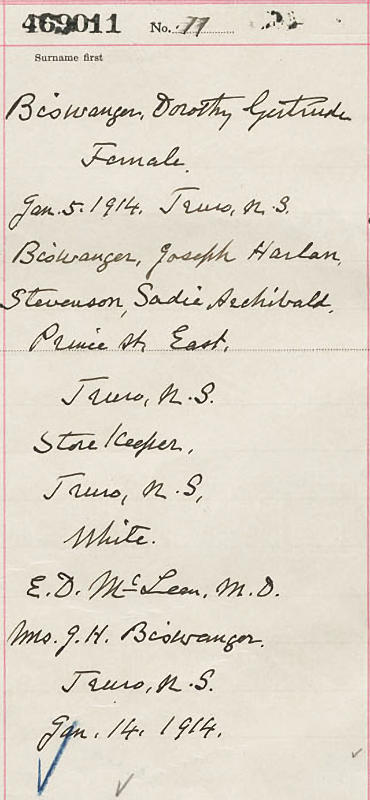 469011 No. 77
Surname first
Biswanger, Dorothy Gertrude
Female.
Jan. 5. 1914. Truro, N.S.
Biswanger, Joseph Harlan,
Stevenson, Sadie Archibald,
Prince St, East.
Truro, N.S.
Store Keeper,
Truro, N.S,
White.
E.D. McLean, M.D.
Mrs. J.H. Biswanger.
Truro, N.S.
Jan. 14. 1914.